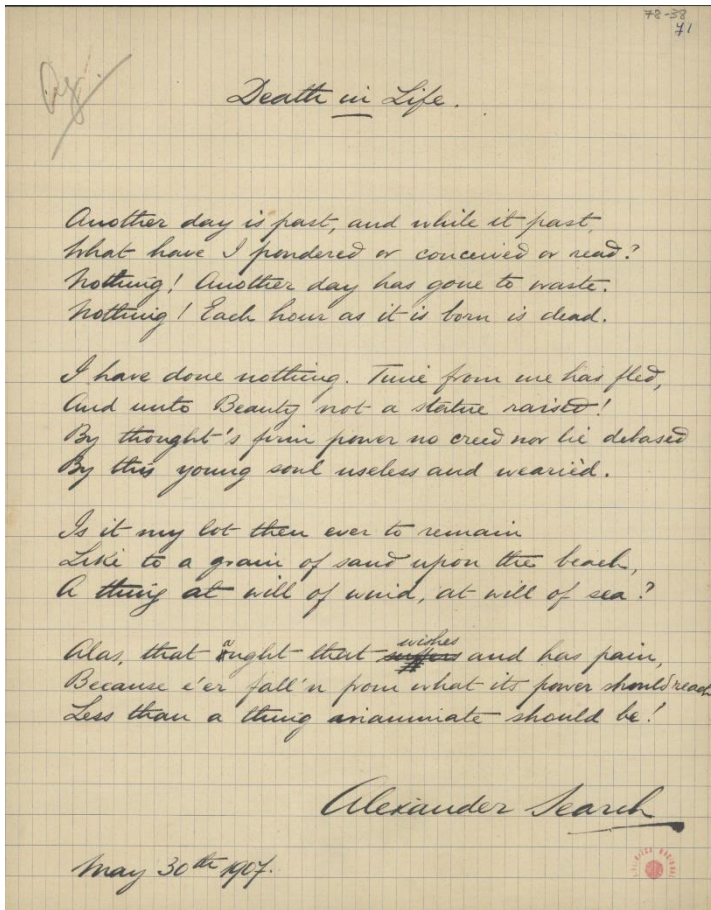 78-38
71
Death in Life.
Another day is past, and while it past,
What have I pondered or conceived or read?
Nothing! Another day has gone to waste.
Nothing! Each hour as it is born is dead.
I have done nothing. Time from me has fled,
And unto Beauty not a statue raised!
By thought's firm power no creed nor lie debased
By this young soul useless and weariéd.
Is it my lot then ever to remain
Like to a grain of sand upon the beach,
A thing at will of wind, at will of sea?
wishes
Alas, that aught that suffers and has pain,
Because e'er fall'n from what its power should reach
Less than a thing inanimate should be!
Alexander Search
May 30th 1907.